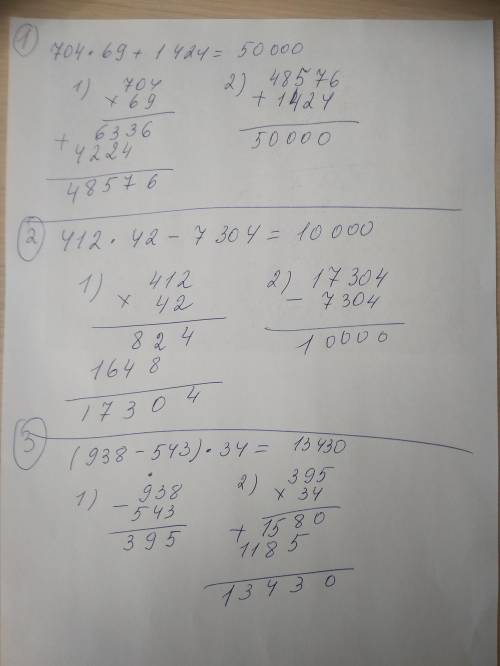 1
704 · 69 + 1424 = 50000
1) 704
× 69
+ 6336
4224
48576
2) 48576
+ 1424
50000
2
412 · 42 - 7304 = 10000
1) 412
× 42
824
1648
17304
2) 17304
- 7304
10000
3
(938 - 543) · 34 = 13430
1) - 938
543
395
2) 395
× 34
+ 1580
1185
13430